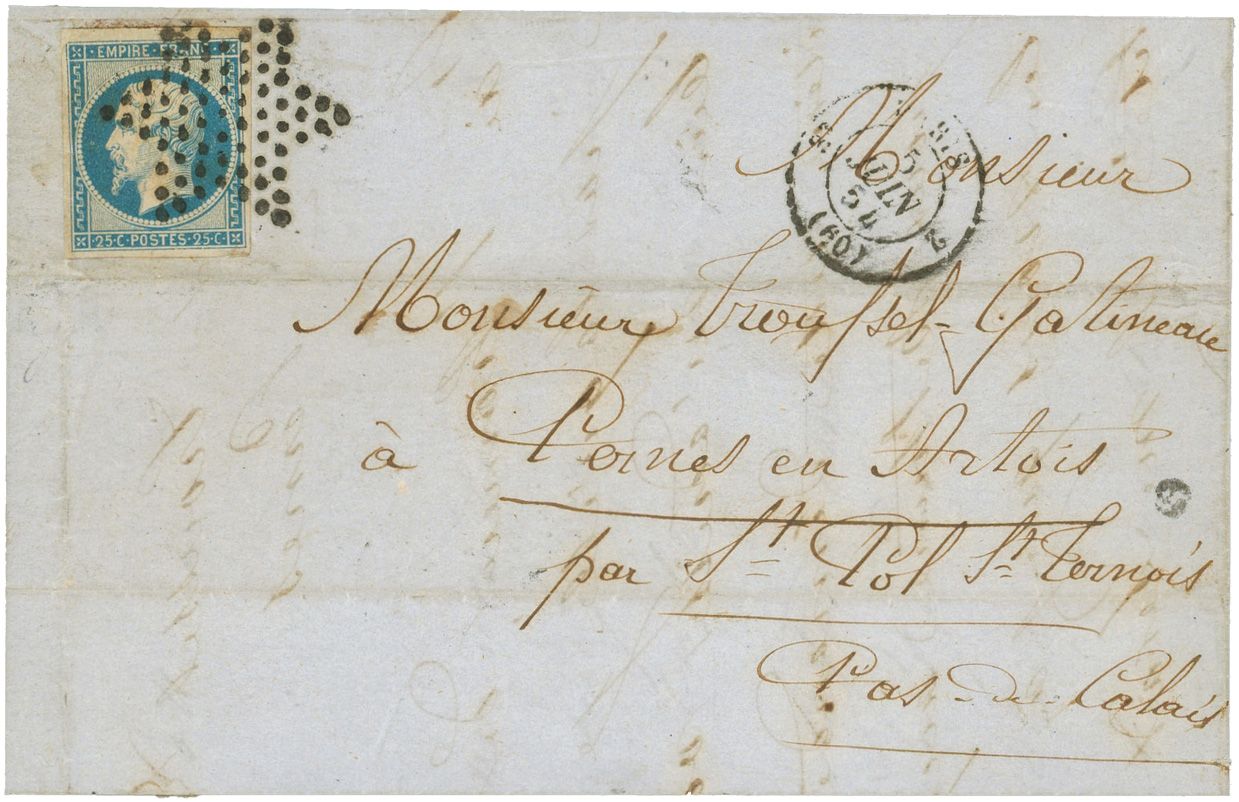 EMPIRE · FRANC ·
25 · C POSTES · 25 · C
5
JUIN
54
(60)
Monsieur
Monsieur Troussel-Gatineau
à Pernes en Artois
par St Pol St Ternois
Pas-de-Calais